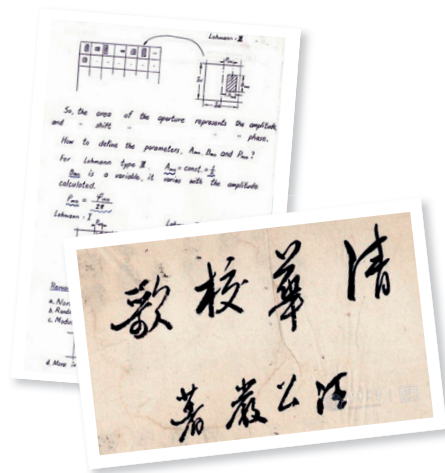 Lohmann - III
So, the area of the aperture represents the amplitude
and " shift " " phase.
How to define the parameters, Amn, Bmn and Pmn?
For Lohmann type III. Amn = const. = 1/2
Bmn is a variable, it varies with the amplitude
calculated.
Pmn = φmn/2π
Lohmann - I
清華校歌
汪公嚴著